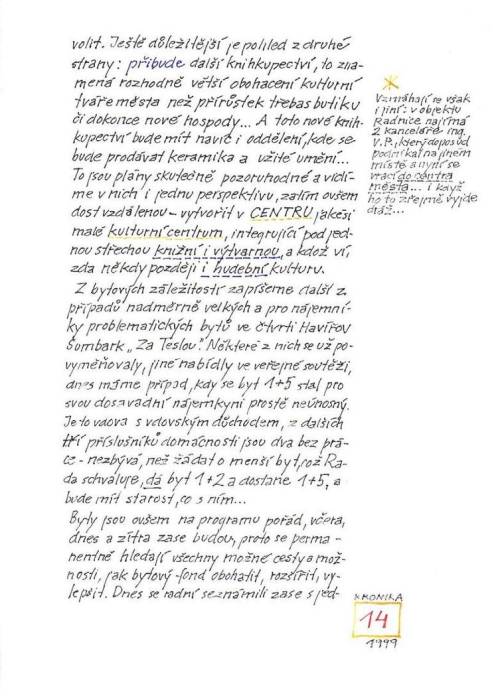 volit. Ještě důležitější je pohled z druhé
strany: přibude další knihkupectví, to zna-
mená rozhodně větší obohacení kulturní
tváře města než přírůstek třebas butiku
či dokonce nové hospody... A toto nové knih-
kupectví bude mít navíc i oddělení, kde se
bude prodávat keramika a užité umění...
To jsou plány skutečně pozoruhodné a vidí-
me v nich i jednu perspektivu, zatím ovšem
dost vzdálenou - vytvořit v CENTRU jakési
malé kulturní centrum, integrující pod jed-
nou střechou knižní i výtvarnou, a kdož ví,
zda někdy později i hudební kulturu.
Z bytových záležitostí zapíšeme další z
případů nadměrně velkých a pro nájemní-
ky problematických bytů ve čtvrti Havířov
Šumbark „Za Teslou". Některé z nich se už po-
vyměňovaly, jiné nabídly ve veřejné soutěži,
dnes máme případ, kdy se byt 1+5 stal pro
svou dosavadní nájemkyni prostě neúnosný.
Je to vdova s vdovským důchodem, z dalších
tří příslušníků domácnosti jsou dva bez prá-
ce - nezbývá, než žádat o menší byt, což Ra-
da schvaluje, dá byt 1+2 a dostane 1+5, a
bude mít starost, co s ním...
Byty jsou ovšem na programu pořád, včera,
dnes a zítra zase budou, proto se perma-
nentně hledají všechny možné cesty a mož-
nosti, jak bytový fond obohatit, rozšířit, vy-
lepšit. Dnes se radní seznámili zase s jed-
Vzmáhají se však
i jiní: v objektu
Radnice najímá
2 kanceláře ing.
V.P., který doposud
podnikal na jiném
místě a nyní se
vrací do centra
města... i když
ho to zřejmě vyjde
dráž...
KRONIKA
14
1999